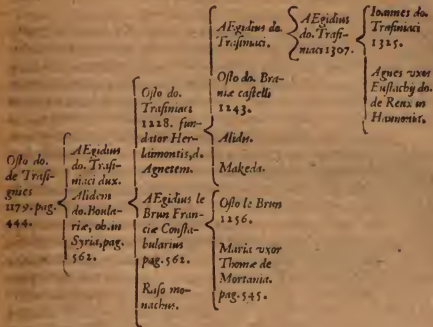 Osto do.
de Trasignies
1279. pag.
444.
AEgidius
do. Trasiniaci
dux.
Alidem
do. Boulariæ,
ob. in
Syria, pag.
562.
Osto do.
Trasiniaci
1228. fundator
Herlaimontis, d.
Agnetem.
AEgidius le
Brun Franciæ
Constabularius
pag. 562.
Raso monachus.
AEgidius do.
Trasiniaci.
Osto do. Braniæ
castelli
1243.
Alidis.
Makeda.
Osto le Brun
1256.
Maria vxor
Thomæ de
Mortania.
pag. 545.
AEgidius
do. Trasiniaci
1307.
Ioannes do.
Trasiniaci
1325.
Agnes vxor
Eustachij do.
de Renx in
Hannonia.